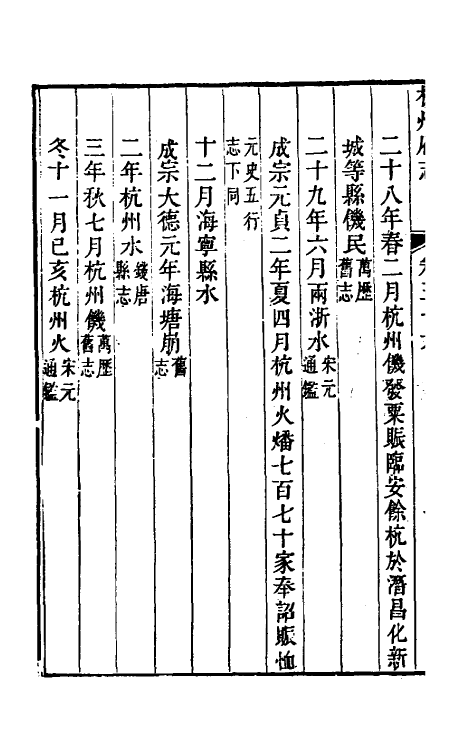 二十八年春二月杭州饑發粟賑臨安餘杭於潛昌化新
城等縣饑民萬歷舊志
二十九年六月兩浙水宋元通鑑
成宗元貞二年夏四月杭州火燔七百七十家奉詔賑恤
元史五行志下同
十二月海寧縣水
成宗大德元年海塘崩舊志
二年杭州水錢唐縣志
三年秋七月杭州饑萬歷舊志
冬十一月己亥杭州火宋元通鑑